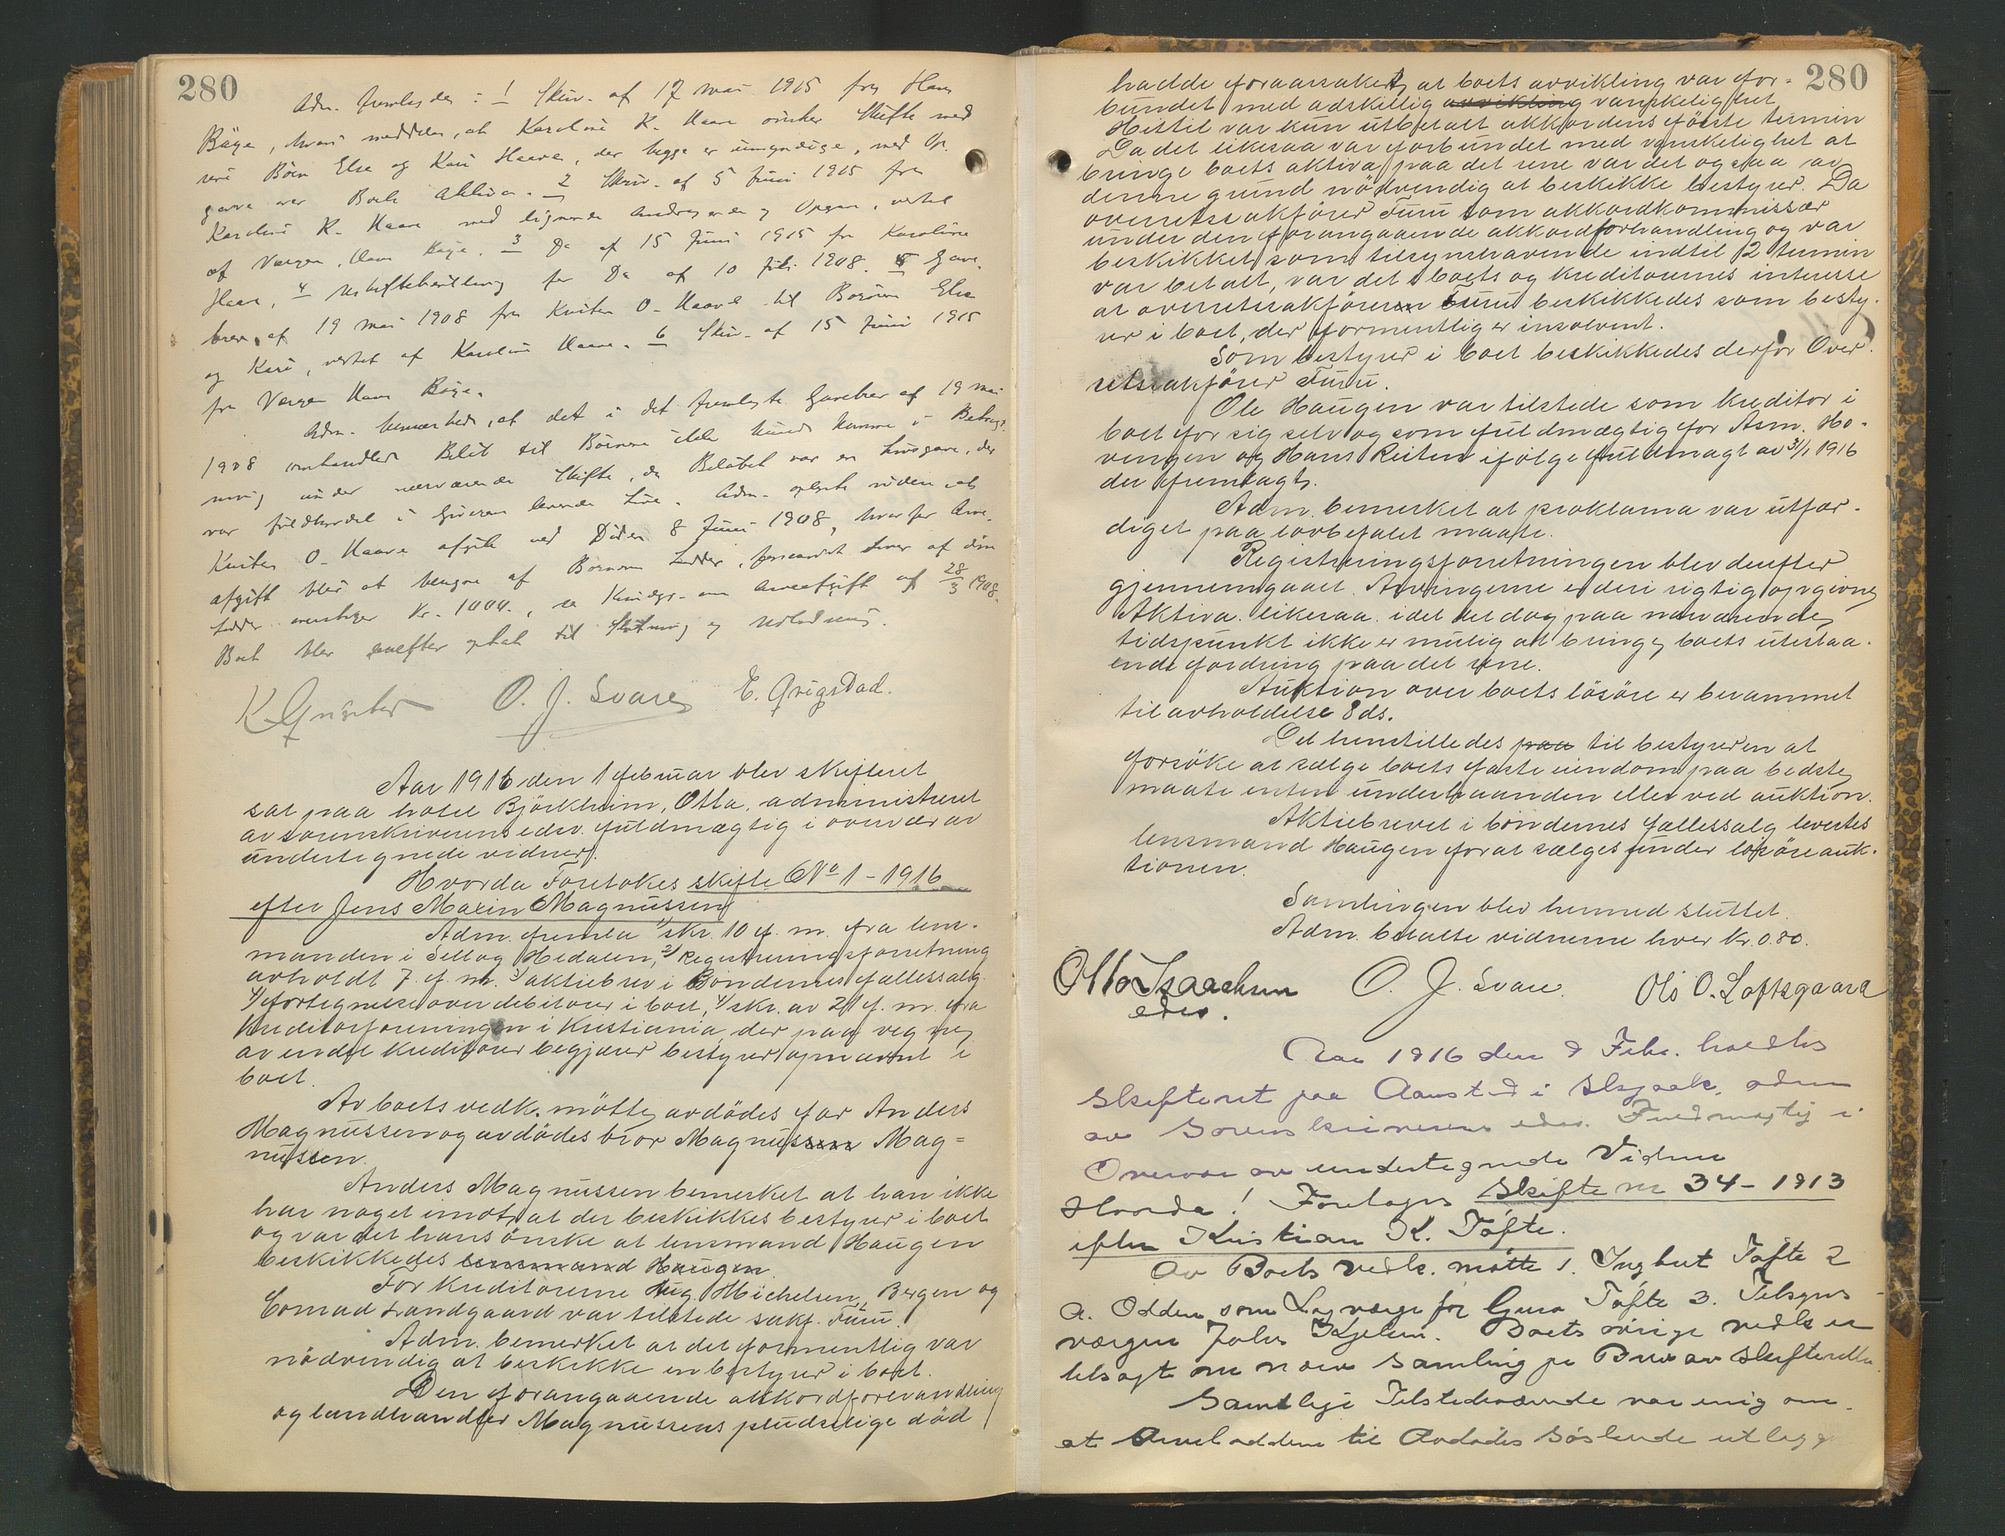 280
Adm. fremlagdes: 1 Skriv. af 17 mai 1915 fra Hans
Böye, hvori meddeles, at Karoline K. Haave önsker Skifte med
sine Börn Else og Kari Haave, der begge er umyndige, med Op-
gave over Boets Aktiva. 2 Skriv. af 5 Juni 1915 fra
Karoline K. Haave med lignende Andragende og Opgave, vertet
af Værgen, Hans Böye. 3 Do af 15 Juni 1915 fra Karoline
Haave, 4 Uskiftebevilling for Do af 10 Juli 1908. 5 Gave-
brev af 19 mai 1908 fra Kristen O. Haave til Börnene Else
og Kari, vertet af Karoline Haave. 6 Skriv. af 15 Juni 1915
fra Værgen Hans Böye.
Adm. bemærkede, at det i det fremlagte Gavebrev af 19 mai
1908 omhandlede Belöb til Börnene ikke kunde komme i Betragt-
ning under nærværende Skifte, da Belöbet var en Livsgave, der
var fuldbyrdet i Giveren levende Live. Adm. oplyste viden at
Kristen O. Haave afgik ved Döden 8 Juni 1908, hvorfor Arve-
afgift blir at beregne af Börnenes Lodder, forsaavidt hver af disse
Lodder overstiger Kr. 1000., se Kundgj. om Arveafgift af 28/3 1908.
Boet blev derefter optat til Slutning og Udlodning.
O. J. Svare E. Qvigstad.
Aar 1916 den 1 februar blev skifteret
sat paa hotel Bjørkheim, Otta, administreret
av sorenskriverens edsv. fuldmægtig i overvær av
undertegnede vidner.
Hvorda Foretokes skifte No 1 - 1916
efter Jens Marin Magnussen
Adm. fremla 1/ skr. 10 f. m. fra lens-
manden i Sell og Hedalen, 2/ Registreringsforretning
avholdt 7 f. m. 3/ aktiebrev i Bøndernes fællessalg
4/ fortegnelse over debitorer i boet, 1/ skr. av 21 f. m. fra
kreditorforeningen i Kristiania, der paa vegne
av endel kreditorer begjærer bestyrer opnævnt i
boet.
Av boets vedk. møtte avdödes far Anders
Magnussen og avdödes bror Magnussen Mag=
nussen.
Anders Magnussen bemerket at han ikke
har noget imot, at der beskikkes bestyrer i boet
og var det hans ønske at lensmand Haugen
beskikkedes lensmand Haugen.
For kreditorerne Aug. Michelsen, Bergen og
Conrad Landgaard var tilstede sakf. Furu.
Adm. bemerket at det formentlig var
nødvendig at beskikke en bestyrer i boet.
Den forangaaende akkordforhandling
og landhandler Magnussens pludselige död
280
hadde foraarsaket, at boets avvikling var for-
bundet med adskillig avvikling vanskelighet
Hittil var kun utbetalt akkordens første termin
Da det likesaa var forbundet med vanskelighet at
bringe boets aktiva paa det rene var det ogsaa av
denne grund nødvendig at beskikke bestyrer. Da
overretssakfører Furu som akkordkommissær
under den forangaaende akkordforhandling og var
beskikket som tilsynshavende indtil 2 termin
var betalt, var det i boets og kreditorernes interesse
at overretssakføreren Furu beskikkedes som besty-
rer i boet, der formentlig er insolvent.
Som bestyrer i boet beskikkedes derfor Over-
retssakfører Furu.
Ole Haugen var tilstede som kreditor i
boet for sig selv og som fuldmægtig for Asm. Ho-
vengen og Hans Reiten ifølge fuldmagt av 31/1 1916
der fremlagts.
Adm. bemerket at proklama var utfær-
diget paa lovbefalet maate.
Registreringsforretningen blev derefter
gjennemgaaet. Arvingerne er deri rigtig opgivne
Aktiva likesaa, idet det dog paa nærværende
tidspunkt ikke er mulig at bringe boets utestaa-
ende fordring paa det rene.
Auktion over boets løsöre er berammet
til avholdelse 8 ds.
Det henstilledes paa til bestyreren at
forsøke at sælge boets faste eiendom paa bedste
maate enten underhaanden eller ved auktion.
Aktiebrevet i bøndernes fællessalg levertes
lensmand Haugen for at sælges under løsøreauk-
tionen.
Samlingen blev hermed sluttet.
Adm. betalte vidnerne hver kr. 0.80.
Otto Isaachsen O. J. Svare. Ole O. Loftsgaard
edsv.
Aar 1916 den 9 Febr. holdtes
Skifteret paa Aamsted i Skjaak, adm
av Sorenskriverens edsv. Fuldmægtig i
Overvær av undertegnede Vidner
Hvorda! Foretages Skifte nr 34 - 1913
efter Kristian K. Tøfte.
Av Boets vedk. møtte 1. Ingbert Tøfte 2
A. Odden som Lagværge for Guro Tøfte 3. Tilsyns-
værgen Johs Kjelen. Boets øvrige vedk er
tilsagt om nærv Samling pr Brev av Skifteretten.
Samtlige Tilstedeværende var enig om
at Arveloddene til Avdødes Søskende utlegg